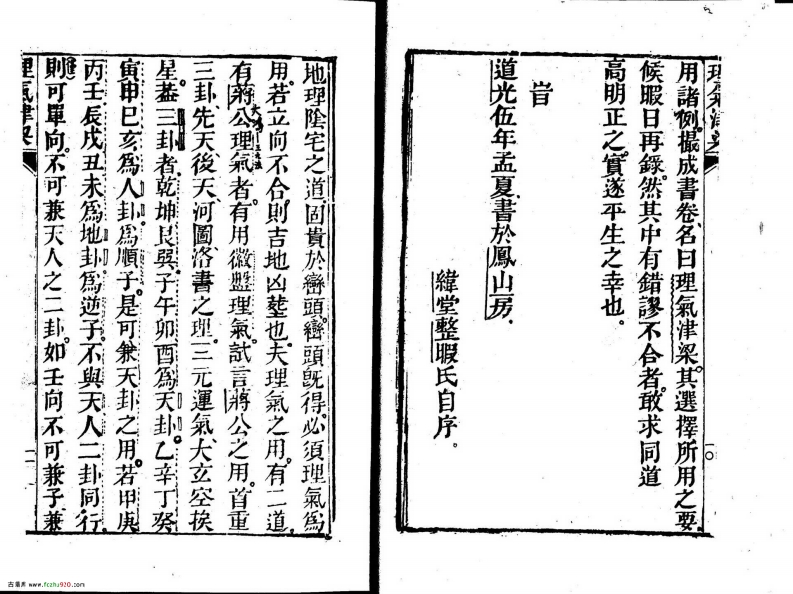 用諸例撮成書卷名曰理氣津梁其選擇所用之要
候暇日再錄然其中有錯謬不合者敢求同道
高明正之實遂平生之幸也
旹
道光伍年孟夏書於鳳山房
緯堂整暇氏自序
地理陰宅之道固貴於巒頭巒頭旣得必須理氣爲
用若立向不合則吉地凶塟也夫理氣之用有二道
有蔣公理氣者有用徽盤理氣試言蔣公之用首重
三卦先天後天河圖洛書之理三元運氣大玄空挨
星葢三卦者乾坤艮巽子午卯酉爲天卦乙辛丁癸
寅申巳亥爲人卦爲順子是可兼天卦之用若甲庚
丙壬辰戌丑未爲地卦爲逆子不與天人二卦同行
則可單向不可兼天人之二卦如壬向不可兼子兼
理氣津梁
古籍库 www.fozhu920.com